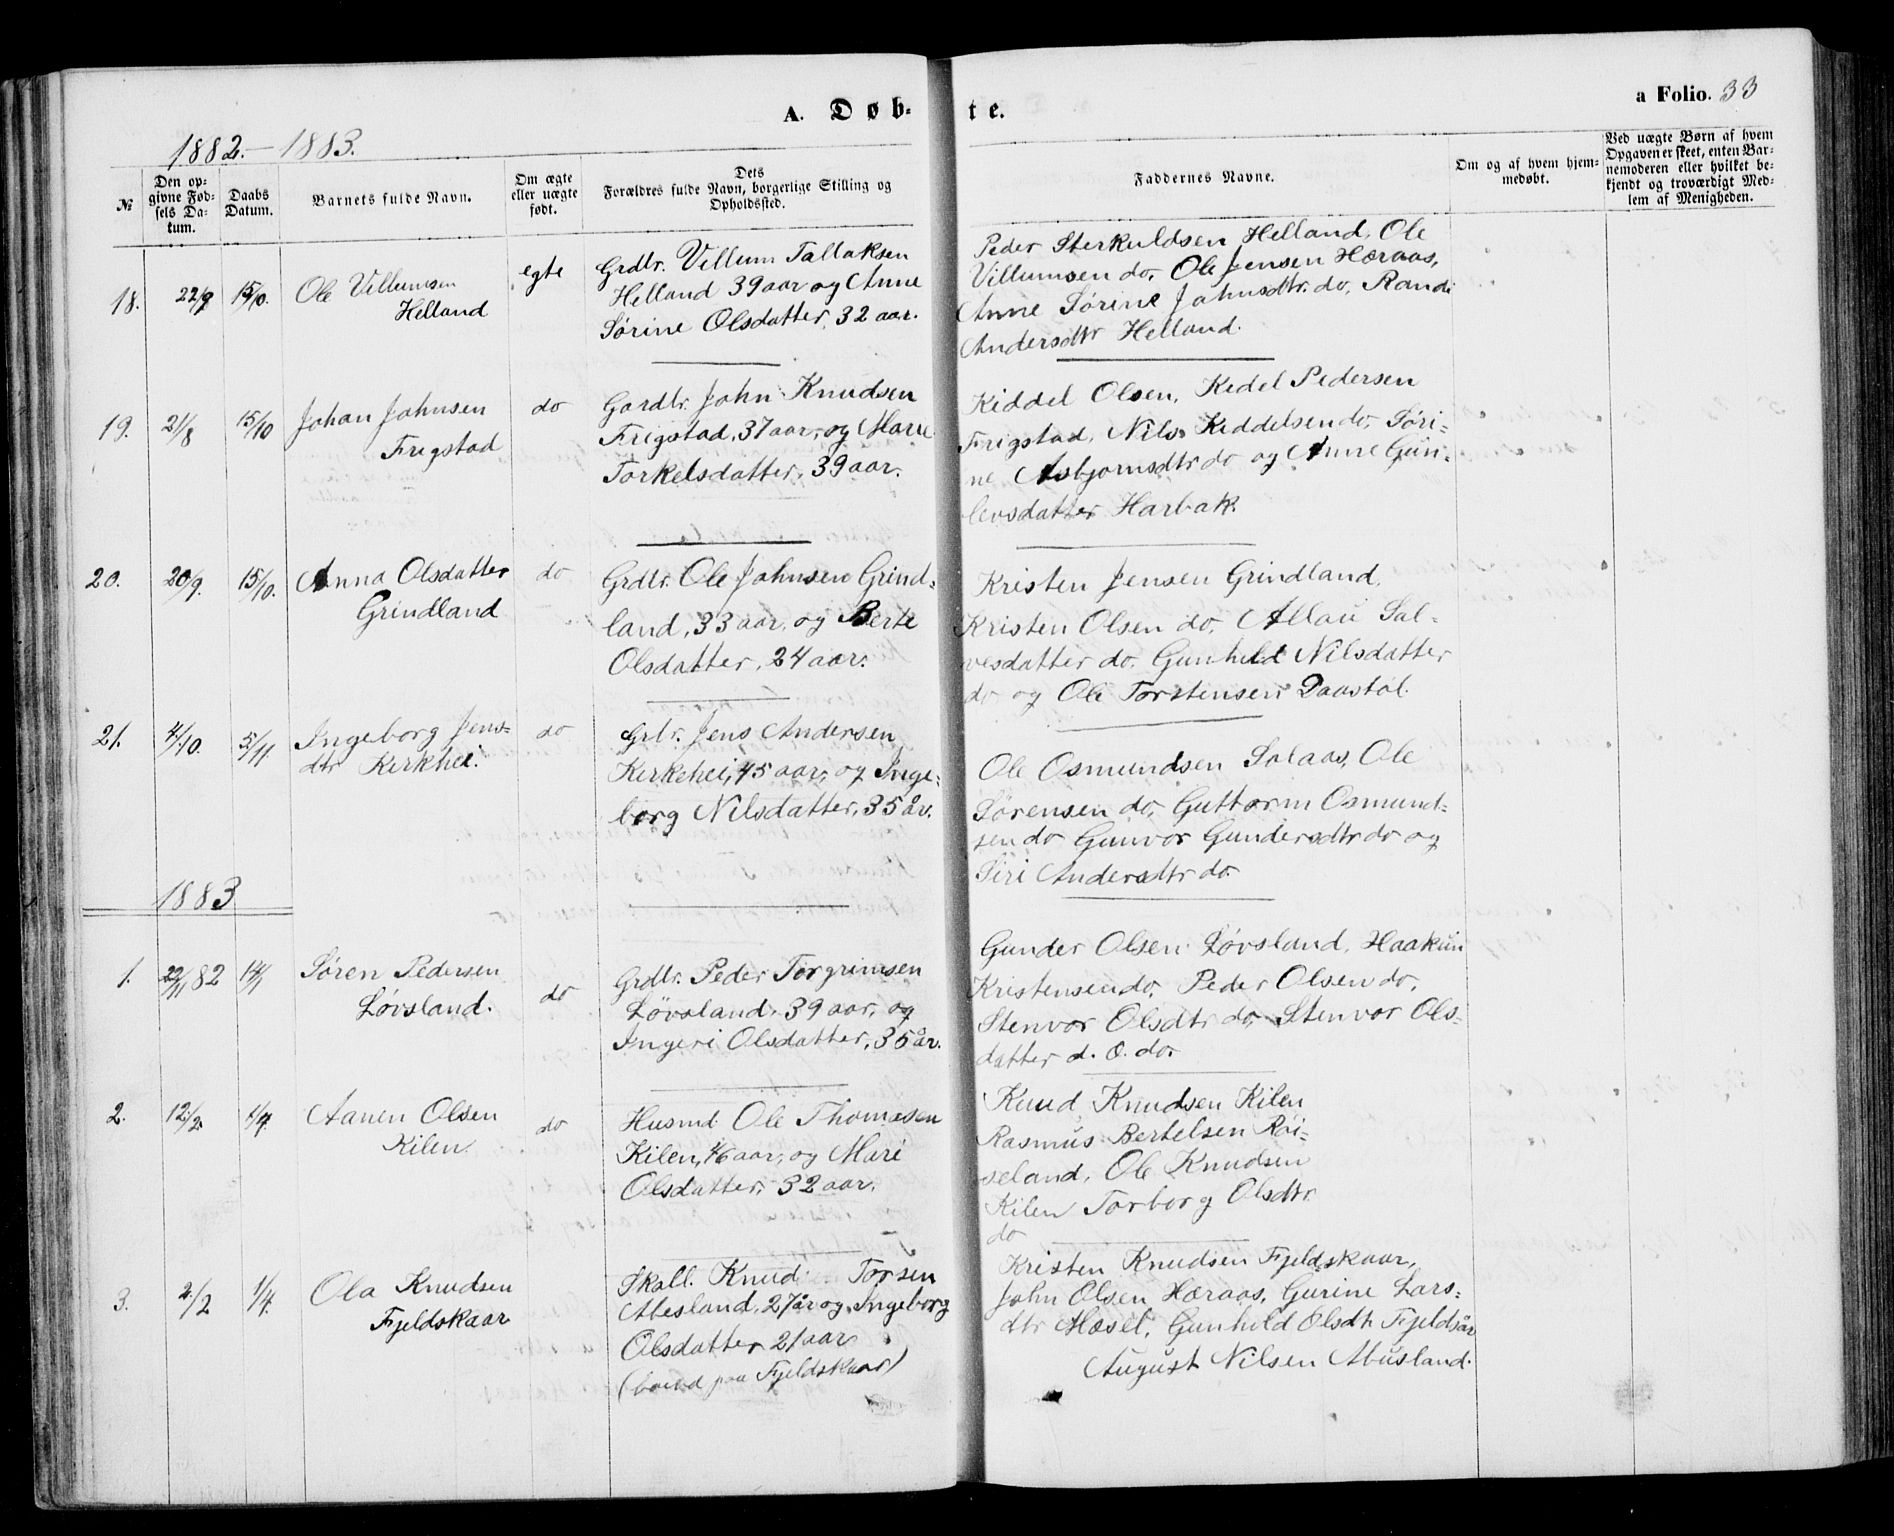 A. Døb-
te.
a Folio. 33
1882.-1883.
№
Den op-
givne Fød-
sels Da-
tum.
Daabs
Datum.
Barnets fulde Navn.
Om ægte
eller uægte
født.
Dets
Forældres fulde Navn, borgerlige Stilling og
Opholdssted.
Faddernes Navne.
Om og af hvem hjem-
medøbt.
Ved uægte Børn af hvem
Opgaven er skeet, enten Bar-
nemoderen eller hvilket be-
kjendt og troværdigt Med-
lem af Menigheden.
18. 22/9 15/10. Ole Villumsen
Helland
egte
Grdbr. Villum Tallaksen
Helland 39 aar og Anne
Sørine Olsdatter, 32 aar.
Peder Sterkuldsen Helland, Ole
Villumsen do, Ole Jensen Hæraas,
Anne Sørine Jahnsdtr. do, Randi
Andersdtr Helland.
19. 21/8 15/10 Johan Jahnsen
Frigstad
do
Gardbr. John Knudsen
Frigstad, 37 aar, og Marie
Torkelsdatter, 39 aar.
Kiddel Olsen, Kedel Pedersen
Frigstad, Nils Kiddelsen do, Søri-
ne Asbjørnsdtr do og Anne Gun-
levsdatter Harbak.
20. 20/9. 15/10. Anna Olsdatter
Grindland
do
Grdbr. Ole Jahnsen Grind-
land, 33 aar, og Berte
Olsdatter, 24 aar.
Kristen Jensen Grindland,
Kristen Olsen do, Allau Sal-
vesdatter do. Gunhild Nilsdatter
do og Ole Torstensen Daastøl.
21. 4/10. 5/11. Ingeborg Jens-
dtr Kirkhei.
do
Grbr. Jens Andersen
Kirkehei, 45 aar, og Inge-
borg Nilsdatter, 35 år.
Ole Osmundsen Solaas, Ole
Sørensen do, Guttorm Osmund-
sen do Gunvor Gundersdtr do og
Siri Andersdtr do.
1883
1. 22/11 82 14/1 Søren Pedersen
Løvsland.
do
Grdbr. Peder Torgrimsen
Løvsland, 39 aar, og
Ingeri Olsdatter, 35 år.
Gunder Olsen Løvsland, Haakun
Kristensen do, Peder Olsen do,
Stenvor Olsdtr do, Stenvor Ols-
datter d. o. do.
2. 12/2 1/4. Aanen Olsen
Kilen.
do
Husmd. Ole Thomasen
Kilen, 46 aar, og Mari
Olsdatter, 32 aar.
Knud Knudsen Kilen
Rasmus Bertelsen Røi-
seland, Ole Knudsen
Kilen Torborg Olsdtr.
do
3. 2/2 1/4. Ola Knudsen
Fjeldskaar
Skoll. Knud Torsen
Abesland, 27 år og Ingeborg
Olsdatter 21 aar
(boend paa Fjeldskaar)
Kristen Knudsen Fjeldskaar,
John Olsen Hæraas, Gurine Lars-
dtr Mosel, Gunhild Olsdtr Fjeldsår
August Nilsen Abusland.